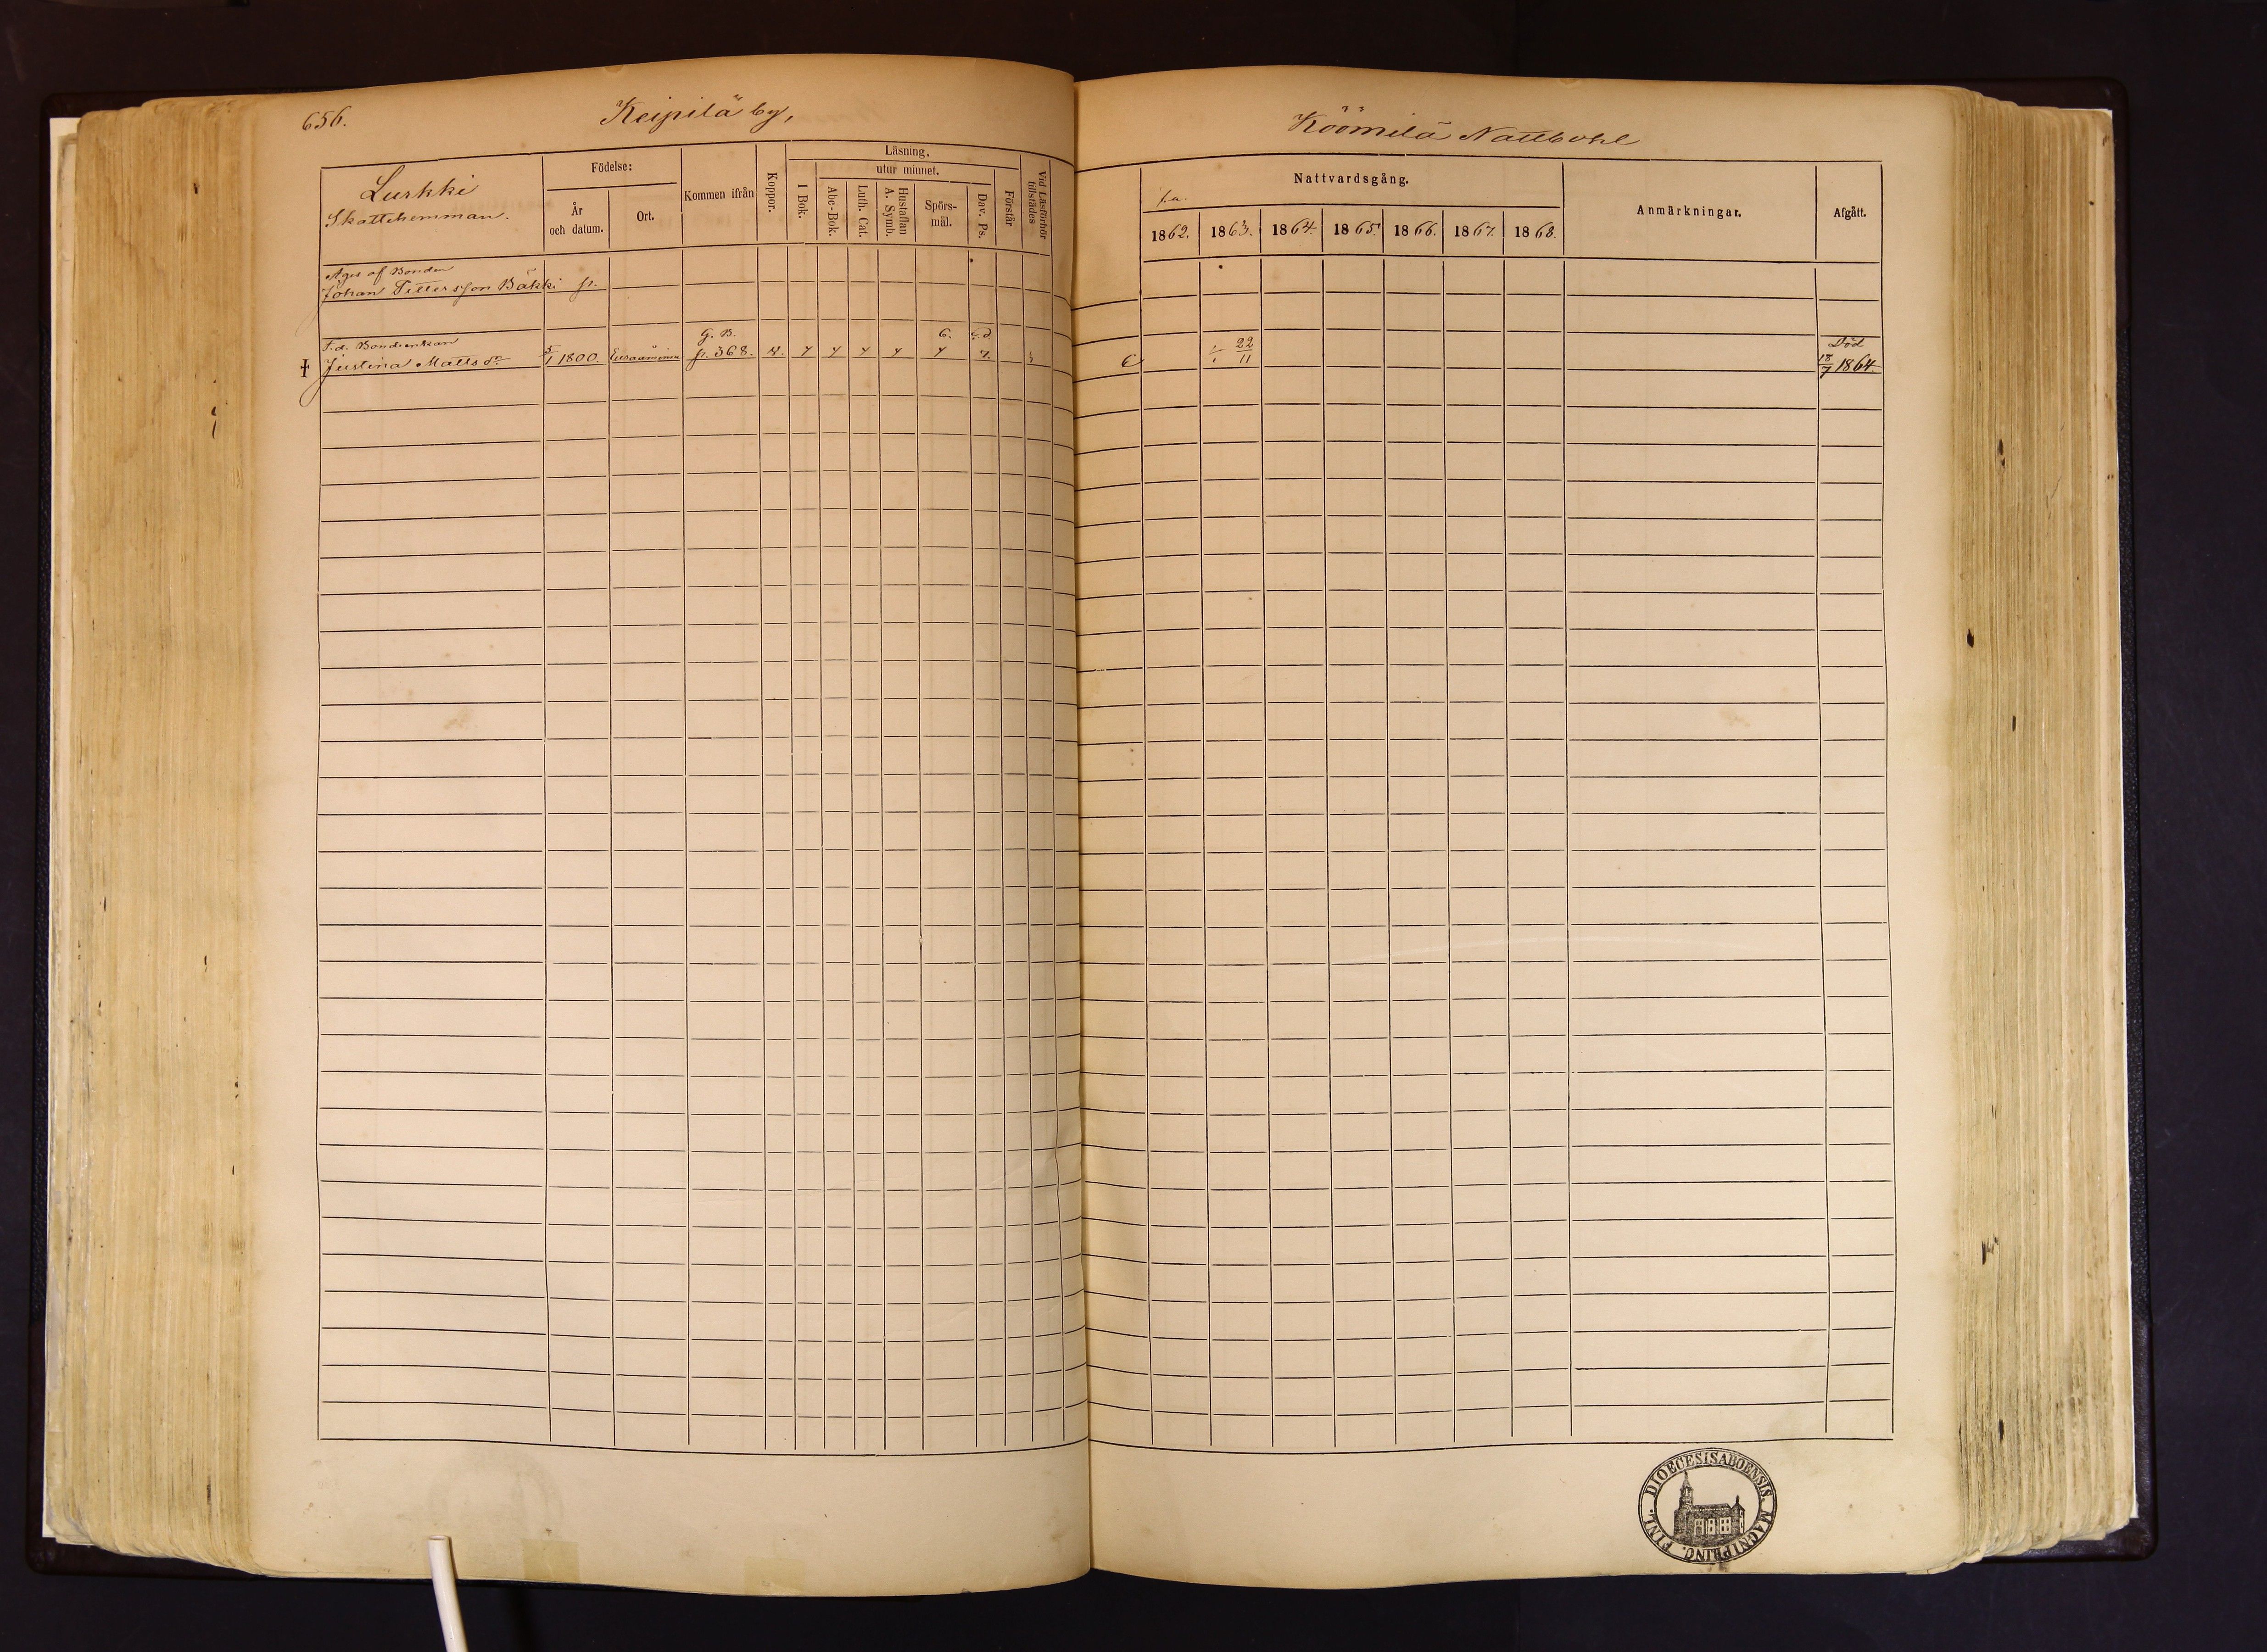 656.
Keipilä by,
Lurkki
Skattehemman.
Födelse:
År
och datum.
Ort.
Kommen ifrån
Koppor.
Läsning,
utur minnet.
I Bok.
Abc-Bok.
Luth. Cat.
Hustaflan
A. Symb.
Spörs-
mål.
Dav. Ps.
Förstår
Vid Läsförhör
tillstädes
Äges af Bonden
Johan Pettersson Bäkki p.
F.d. Bondeenkan
Justina Matts dr
5/1 1800.
Euraåminne
G. B.
p. 368.
v.
6.
7.
Köömilä Nattbohl
Nattvardsgång.
1862.
1863.
1864.
1865.
1866.
1867.
1868.
Anmärkningar.
Afgått.
22
11
Död
18/7 1864.
FINL. DIOECESIS ABOENSIS. MAGNI PRINC.